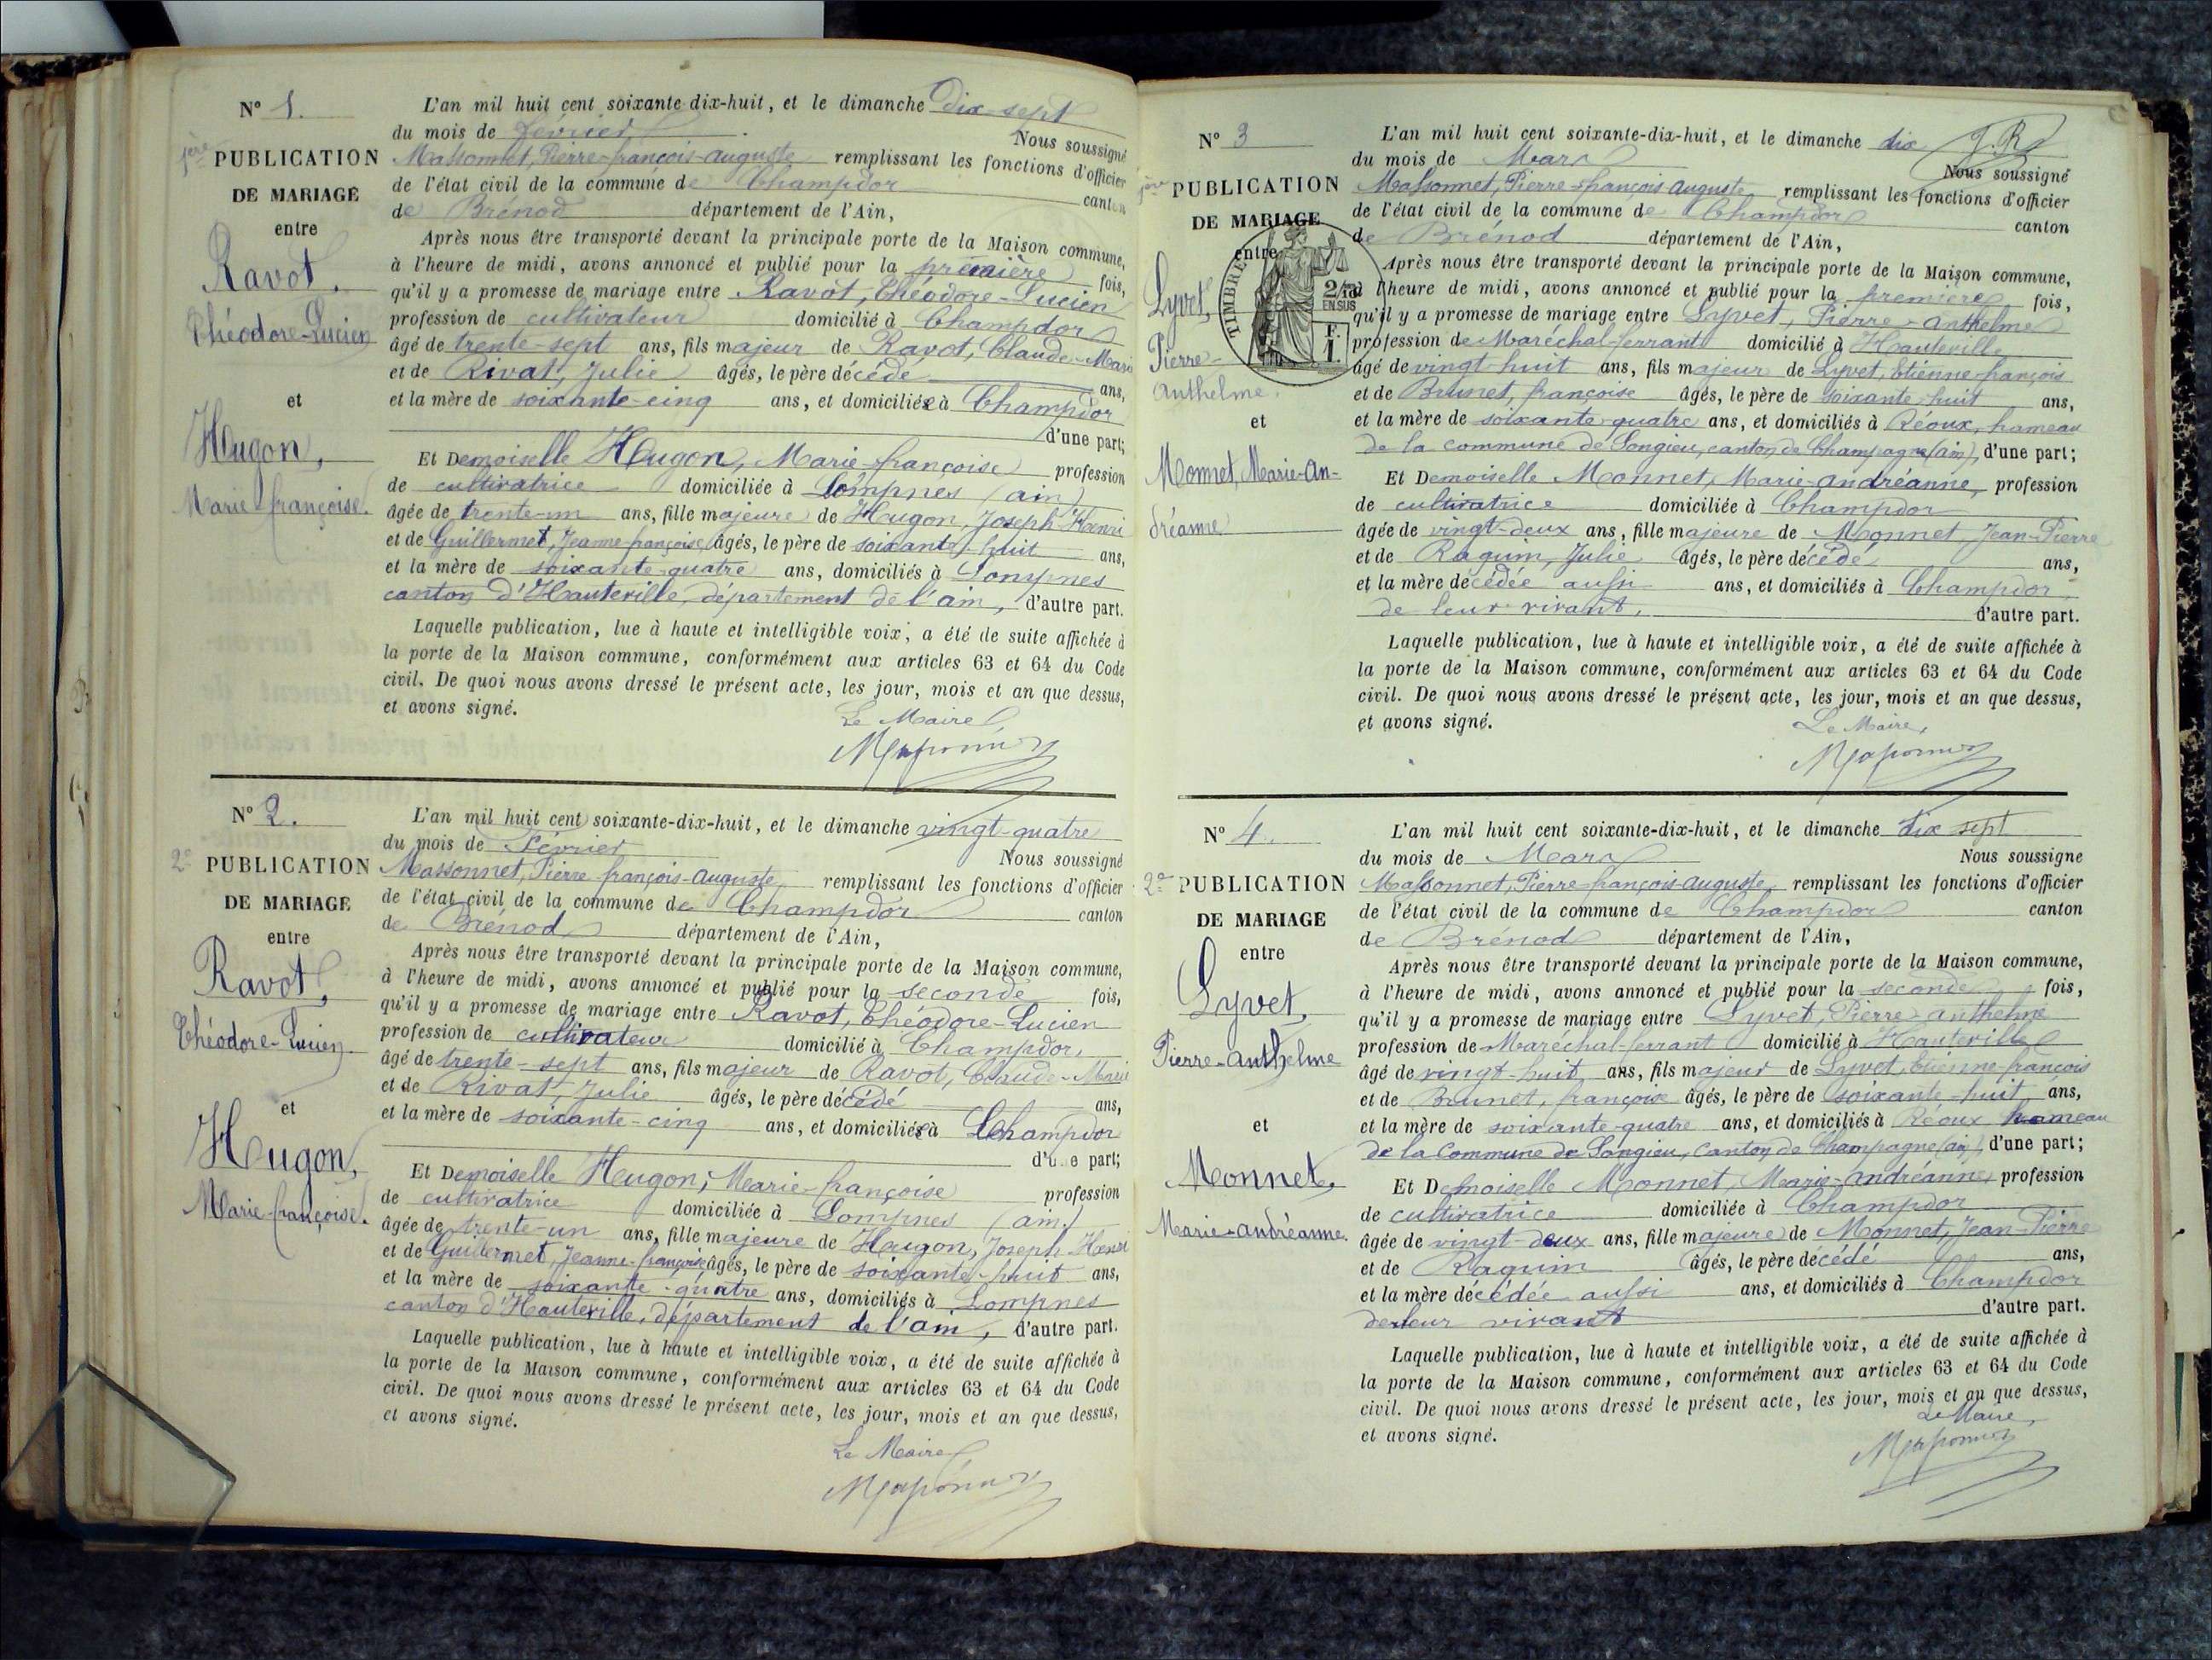 N° 1.
1ère PUBLICATION
DE MARIAGE
entre
Ravot,
Théodore-Lucien
et
Hugon,
Marie-françoise.
L'an mil huit cent soixante-dix-huit, et le dimanche dix-sept
du mois de février. Nous soussigné
Massonnet, Pierre-françois-auguste remplissant les fonctions d'officier
de l'état civil de la commune de Champdor canton
de Brénod département de l'Ain,
Après nous être transporté devant la principale porte de la Maison commune,
à l'heure de midi, avons annoncé et publié pour la première fois,
qu'il y a promesse de mariage entre Ravot, Théodore-Lucien
profession de cultivateur domicilié à Champdor
âgé de trente-sept ans, fils majeur de Ravot, Claude-Marie
et de Rivat, Julie âgés, le père décédé ans,
et la mère de soixante-cinq ans, et domiciliée à Champdor
d'une part;
Et Demoiselle Hugon, Marie-françoise profession
de cultivatrice domiciliée à Lompnès (ain)
âgée de trente-un ans, fille majeure de Hugon, Joseph-Henri
et de Guillermet, Jeanne-françoise âgés, le père de soixante-huit ans,
et la mère de soixante-quatre ans, domiciliés à Lompnes
canton d'Hauteville, département de l'ain, d'autre part.
Laquelle publication, lue à haute et intelligible voix, a été de suite affichée à
la porte de la Maison commune, conformément aux articles 63 et 64 du Code
civil. De quoi nous avons dressé le présent acte, les jour, mois et an que dessus,
et avons signé.
Le Maire
Massonnet
N° 2.
2e PUBLICATION
DE MARIAGE
entre
Ravot,
Théodore-Lucien
et
Hugon,
Marie-françoise.
L'an mil huit cent soixante-dix-huit, et le dimanche vingt-quatre
du mois de Février Nous soussigné
Massonnet, Pierre-françois-auguste remplissant les fonctions d'officier
de l'état civil de la commune de Champdor canton
de Brénod département de l'Ain,
Après nous être transporté devant la principale porte de la Maison commune,
à l'heure de midi, avons annoncé et publié pour la seconde fois,
qu'il y a promesse de mariage entre Ravot, Théodore-Lucien
profession de cultivateur domicilié à Champdor,
âgé de trente-sept ans, fils majeur de Ravot, Claude-Marie
et de Rivat, Julie âgés, le père décédé ans,
et la mère de soixante-cinq ans, et domiciliée à Champdor
d'une part;
Et Demoiselle Hugon, Marie-françoise profession
de cultivatrice domiciliée à Lompnes (ain)
âgée de trente-un ans, fille majeure de Hugon, Joseph-Henri
et de Guillermet, Jeanne-françoise âgés, le père de soixante-huit ans,
et la mère de soixante-quatre ans, domiciliés à Lompnes
canton d'Hauteville, département de l'ain, d'autre part.
Laquelle publication, lue à haute et intelligible voix, a été de suite affichée à
la porte de la Maison commune, conformément aux articles 63 et 64 du Code
civil. De quoi nous avons dressé le présent acte, les jour, mois et an que dessus,
et avons signé.
Le Maire
Massonnet
N° 3
1ère PUBLICATION
DE MARIAGE
entre
TIMBRE
2/10 EN SUS
F. 1.
Lyvet,
Pierre-
Anthelme,
et
Monnet, Marie-An-
dréanne
L'an mil huit cent soixante-dix-huit, et le dimanche dix J. R.
du mois de Mars Nous soussigné
Massonnet, Pierre-françois-auguste remplissant les fonctions d'officier
de l'état civil de la commune de Champdor canton
de Brénod département de l'Ain,
Après nous être transporté devant la principale porte de la Maison commune,
à l'heure de midi, avons annoncé et publié pour la première fois,
qu'il y a promesse de mariage entre Lyvet, Pierre-anthelme
profession de Maréchal-ferrant domicilié à Hauteville
âgé de vingt-huit ans, fils majeur de Lyvet, Etienne-françois
et de Brunet, françoise âgés, le père de soixante-huit ans,
et la mère de soixante-quatre ans, et domiciliés à Réoux, hameau
de la commune de Songieu, canton de Champagne (ain), d'une part;
Et Demoiselle Monnet, Marie-andréanne, profession
de cultivatrice domiciliée à Champdor
âgée de vingt-deux ans, fille majeure de Monnet, Jean-Pierre
et de Ragum, Julie âgés, le père décédé ans,
et la mère décédée aussi ans, et domiciliés à Champdor
de leur vivant, d'autre part.
Laquelle publication, lue à haute et intelligible voix, a été de suite affichée à
la porte de la Maison commune, conformément aux articles 63 et 64 du Code
civil. De quoi nous avons dressé le présent acte, les jour, mois et an que dessus,
et avons signé.
Le Maire,
Massonnet
N° 4.
2e PUBLICATION
DE MARIAGE
entre
Lyvet,
Pierre-anthelme
et
Monnet,
Marie-andréanne.
L'an mil huit cent soixante-dix-huit, et le dimanche dix sept
du mois de Mars Nous soussigné
Massonnet, Pierre-françois-auguste, remplissant les fonctions d'officier
de l'état civil de la commune de Champdor canton
de Brénod département de l'Ain,
Après nous être transporté devant la principale porte de la Maison commune,
à l'heure de midi, avons annoncé et publié pour la seconde fois,
qu'il y a promesse de mariage entre Lyvet, Pierre anthelme
profession de Maréchal-ferrant domicilié à Hauteville
âgé de vingt-huit ans, fils majeur de Lyvet, Etienne-françois
et de Brunet, françoise âgés, le père de soixante-huit ans,
et la mère de soixante-quatre ans, et domiciliés à Réoux hameau
de la Commune de Songieu, canton de Champagne (ain), d'une part;
Et Demoiselle Monnet, Marie-andréanne, profession
de cultivatrice domiciliée à Champdor
âgée de vingt-deux ans, fille majeure de Monnet, Jean-Pierre
et de Ragum âgés, le père décédé ans,
et la mère décédée aussi ans, et domiciliés à Champdor
de leur vivant d'autre part.
Laquelle publication, lue à haute et intelligible voix, a été de suite affichée à
la porte de la Maison commune, conformément aux articles 63 et 64 du Code
civil. De quoi nous avons dressé le présent acte, les jour, mois et an que dessus,
et avons signé.
Le Maire,
Massonnet